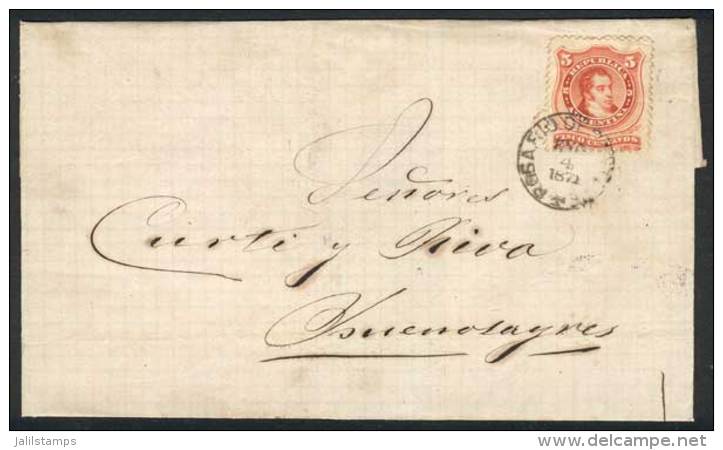 5 REPUBLICA 5
ARGENTINA
CINCO CENTAVOS
ROSARIO DE
4
187
Señores
Curti y Riva
Buenosayres
jalilstamps
www.delcampe.net